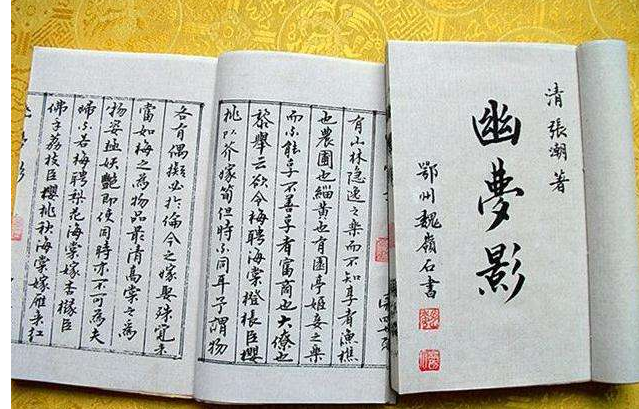 清 張潮著
幽夢影
鄂州魏嶺石書
有山林隱逸之樂而不知享者漁樵
也農圃也緇黃也有園亭姬妾之樂
而不能享不善享者富商也大僚也
黎舉云欲令梅聘海棠橙棖臣櫻
桃以芥嫁筍但時不同耳予謂物
各有偶擬必於倫今之嫁娶殊覺未
當如梅之為物品最清高棠之為
物姿極妖艷即使同時亦不可為夫
婦不若梅聘梨花海棠嫁杏櫞臣
佛手荔枝臣櫻桃秋海棠嫁雁来紅